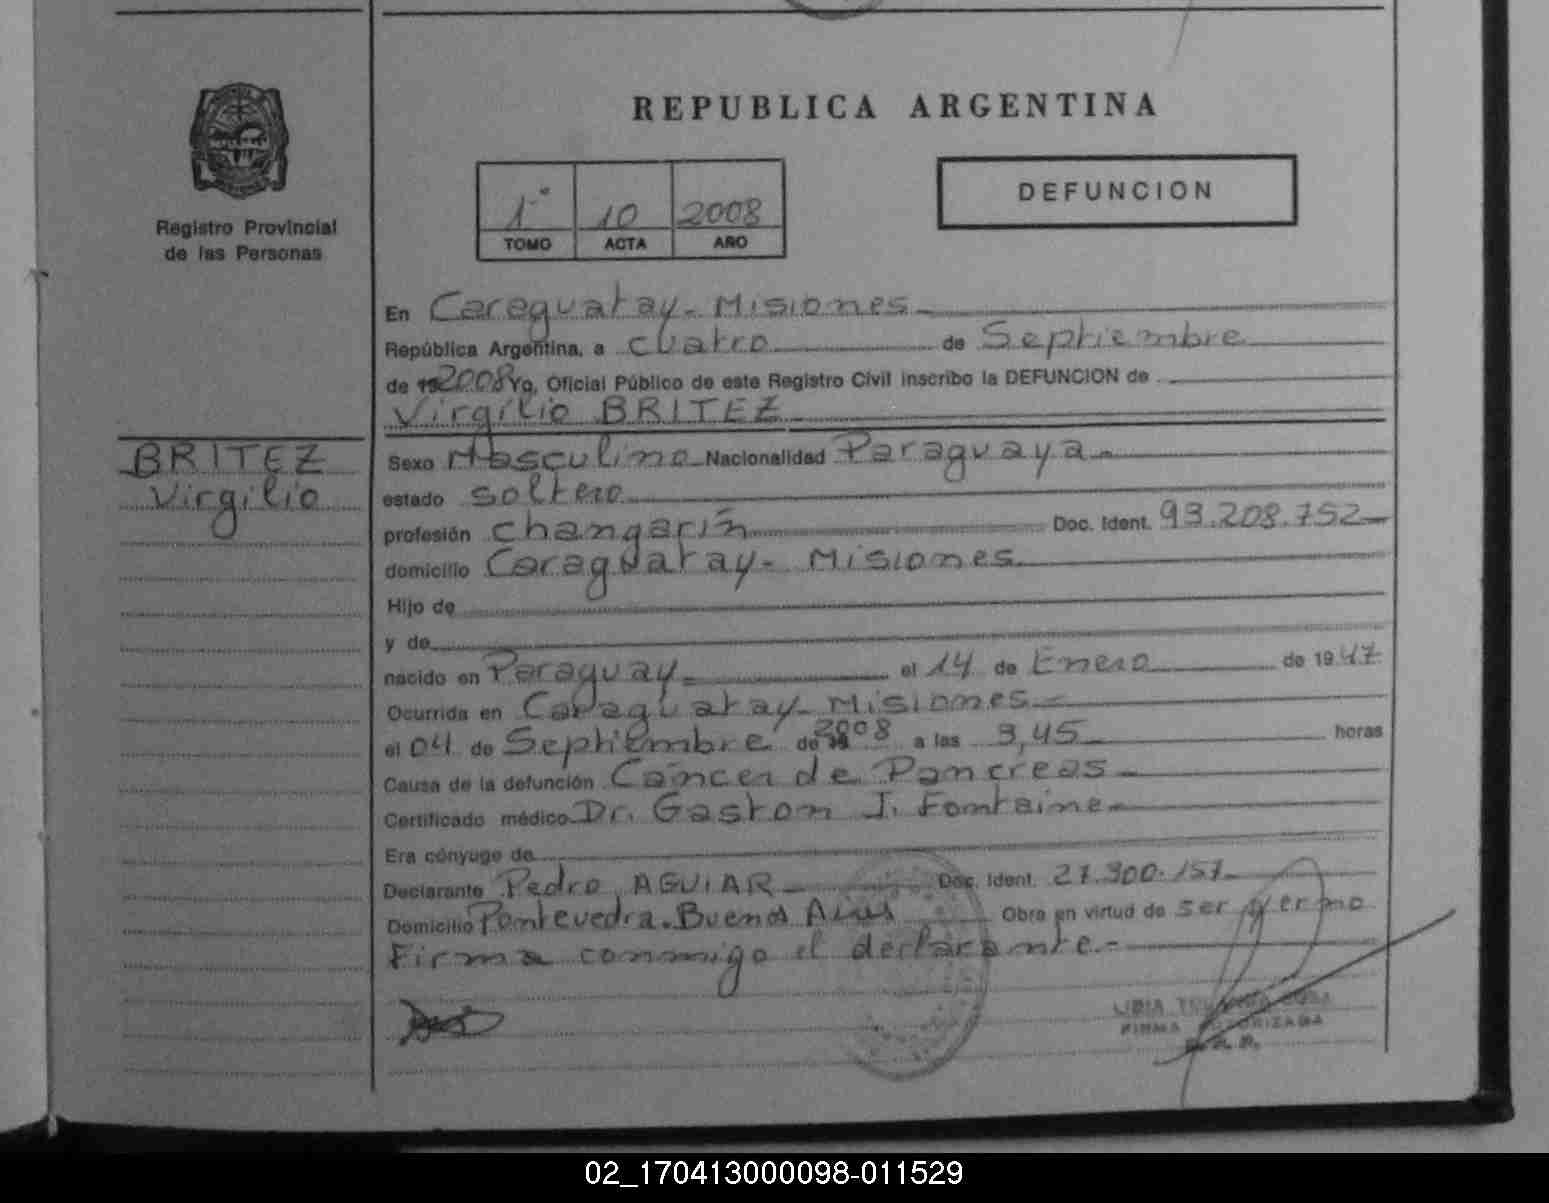 REPUBLICA ARGENTINA
Registro Provincial
de las Personas
1º 10 2008
TOMO ACTA AÑO
DEFUNCION
En Caraguatay - Misiones
República Argentina, a cuatro de Septiembre
de 2008 Yo, Oficial Público de este Registro Civil inscribo la DEFUNCION de
Virgilio BRITEZ
BRITEZ
Virgilio
Sexo Masculino Nacionalidad Paraguaya
estado soltero
profesión changarín Doc. Ident. 93.208.752
domicilio Caraguatay - Misiones
Hijo de
y de
nacido en Paraguay el 14 de Enero de 1947
Ocurrida en Caraguatay - Misiones
el 04 de Septiembre de 2008 a las 3,45 horas
Causa de la defunción Cáncer de Pancreas
Certificado médico Dr. Gaston J. Fontaine
Era cónyuge de
Declarante Pedro AGUIAR Doc. Ident. 27.900.157
Domicilio Pontevedra. Buenos Aires Obra en virtud de ser yerno
Firma conmigo el declarante.-
LIDIA
FIRMA AUTORIZADA
02_170413000098-011529